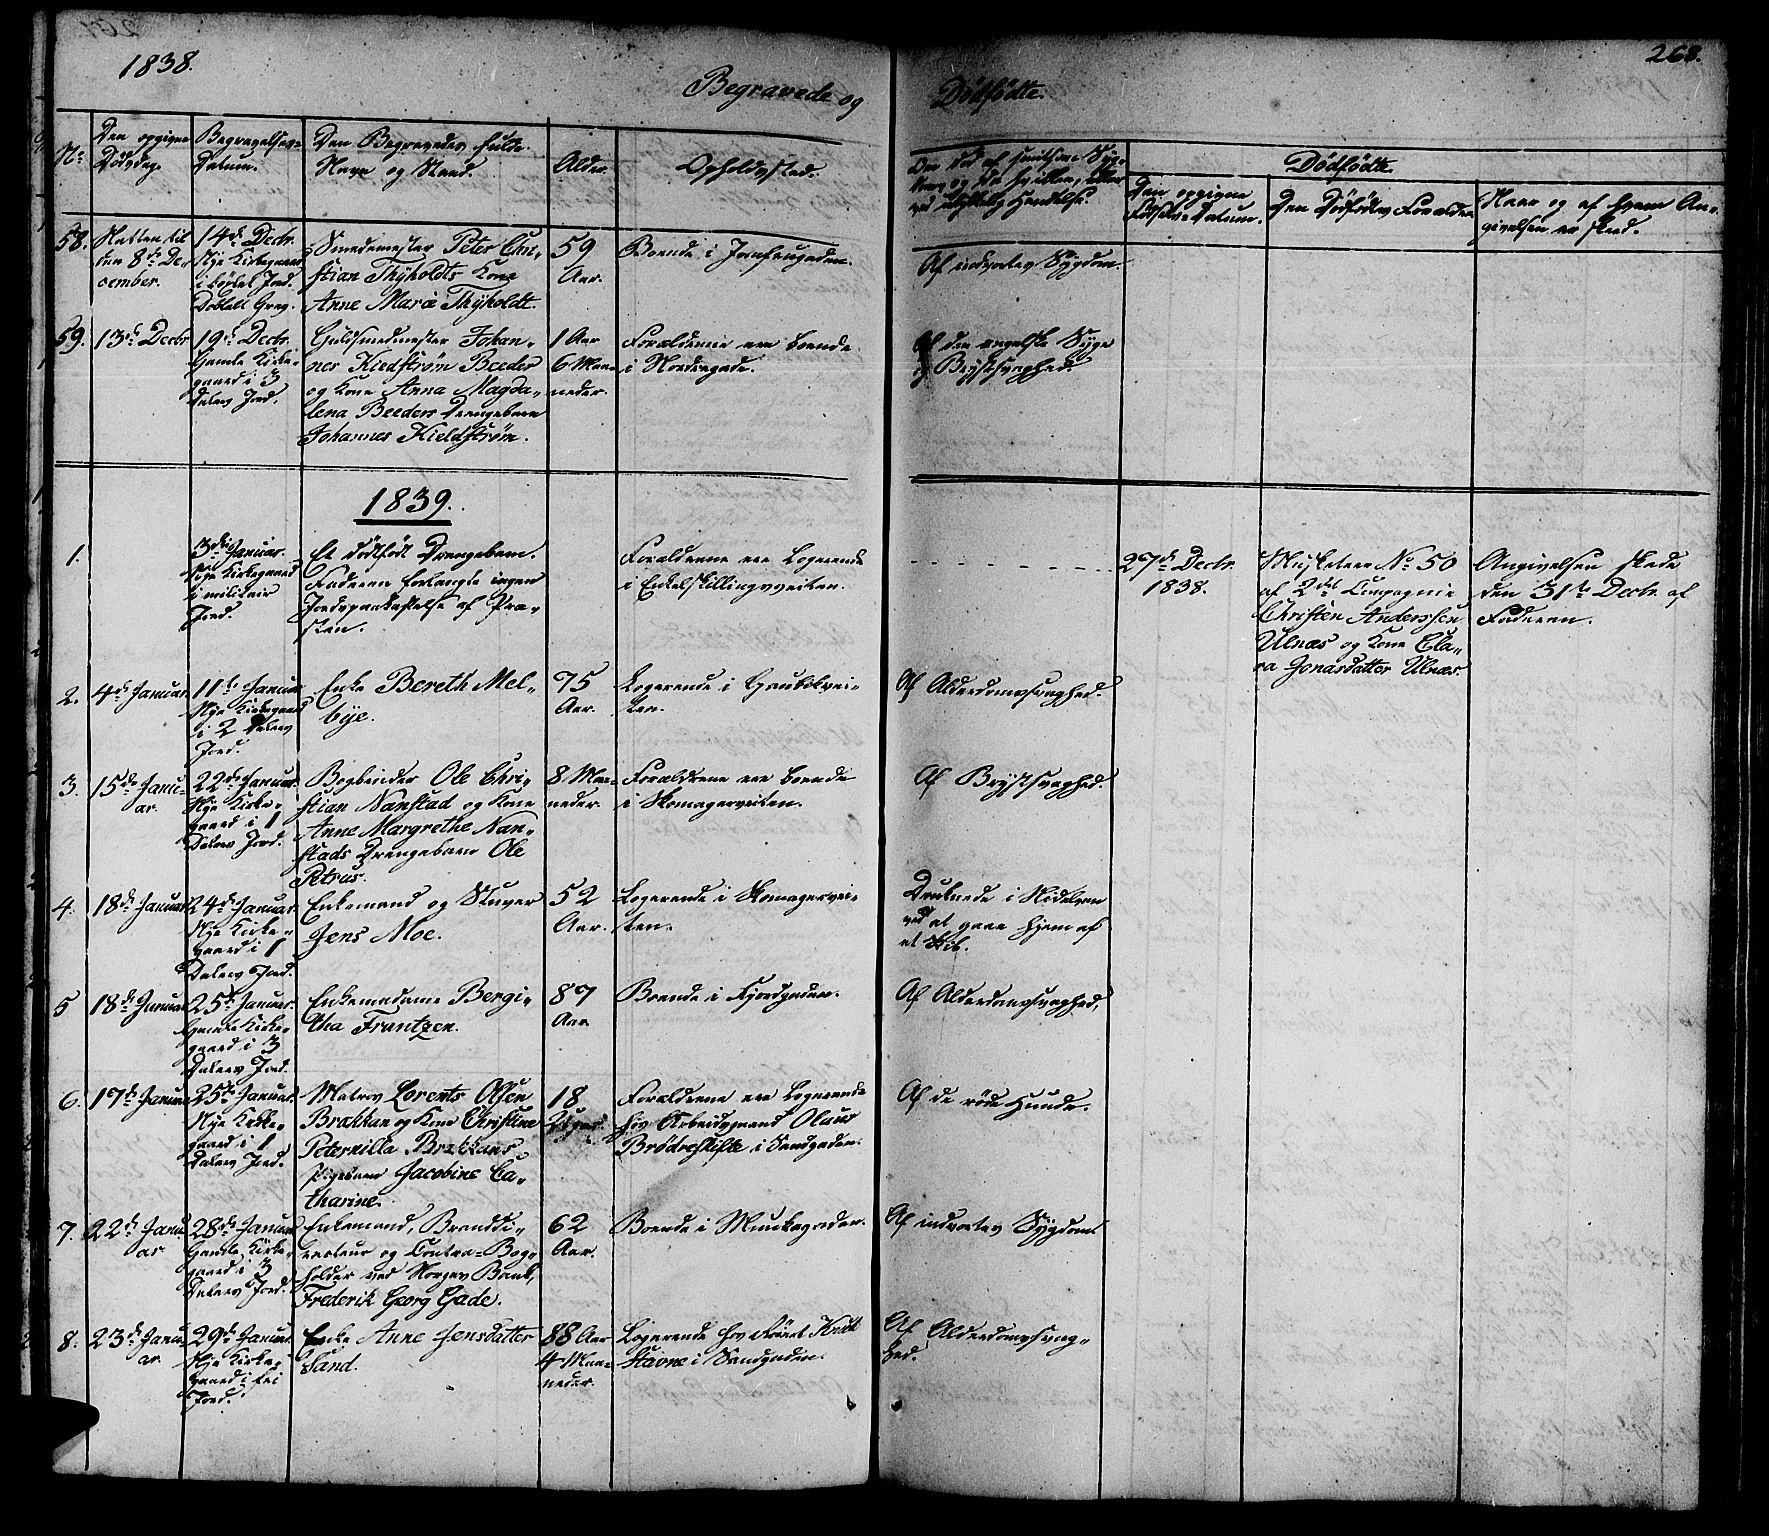 1838.
268.
Begravede og Dødfødte.
No
Den opgivne Dødsdag.
Begravelses-Datum.
Den Begravedes fulde Navn og Stand.
Alder.
Opholdssted.
Om død af smitsom Syg-
ved ulykkelig Hændelse.
Dødfødte.
Den opgivne Fødsels-Datum.
Den Dødfødtes Forældre
Naar og af hvem An-
givelsen er skeed.
58.
Natten til
den 8de De-
cember.
14de Decbr.
Nye Kirkegaard
i købt Jord.
Dobbelt Grav.
Smedemester Peter Chri-
stian Thyholdts Kone
Anne Maria Thyholdt.
59
Aar.
Boende i Jomfrugaden.
Af indvortes Sygdom.
59.
13de Decbr
19de Decbr.
Gamle Kirke-
gaard i 3
Dalers Jord.
Guldsmedmester Johan-
nes Kieldstrøm Beeder
og Kone Anna Magda-
lena Beeders Drengebarn
Johannes Kieldstrøm.
1 Aar
6 Maa-
neder.
Forældrene ere boende
i Nordregade.
Af den engelske Syge
og Brystsvaghed.
1839.
1.
3die Januar.
Nye Kirkegaard
i militair
Jord.
Et dødfødt Drengebarn.
Faderen forlangte ingen
Jordspaakastelse af Præ-
sten.
Forældrene ere Logerende
i Enkelskillingsveiten.
27de Decbr.
1838.
Musketeer No 50
af 2det Compagnie
Christen Anderssen
Ulnæs og Kone Cla-
ra Jonasdatter Ulnæs.
Angivelsen skede
den 31te Decbr. af
Faderen.
2.
4de Januar.
11te Januar
Nye Kirkegaard
i 2 Dalers
Jord.
Enke Bereth Mel-
bye.
75
Aar.
Logerende i Grubbkvei-
ten.
Af Alderdomssvaghed.
3.
15de Janu-
ar.
22de Januar.
Nye Kirke-
gaard i 1
Dalers Jord.
Bogbinder Ole Chri-
stian Nanstad og Kone
Anne Margrethe Nan-
stads Drengebarn Ole
Petrus.
8 Maa-
neder.
Forældrene ere boende
i Skomagerveiten.
Af Brystsvaghed.
4.
18de Januar
24de Januar.
Nye Kirke-
gaard i 1
Dalers Jord.
Enkemand og Stuver
Jens Moe.
52
Aar.
Logerende i Skomagervei-
ten.
Druknede i Nidelven
ved at gaae hjem af
et Skib.
5
18de Januar
25de Januar.
Gamle Kirke-
gaard i 3
Dalers Jord.
Enkemadame Bergi-
tha Frantzen.
87
Aar
Boende i Fjordgaden.
Af Alderdomssvaghed,
6.
17de Januar
25de Januar.
Nye Kirke-
gaard i 1
Dalers Jord.
Matros Lorents Olsen
Brækkan og Kone Christine
Peternilla Brækkans
Pigebarn Jacobine Ca-
tharine.
18
Uger.
Forældrene ere Logerende
hos Arbeidsmand Olaus
Brødreskifte i Sandgaden.
Af de røde Hunde.
7.
22de Janu
ar
28de Januar
Gamle Kirke-
gaard i 3
Dalers Jord.
Enkemand, Branddi-
recteur og Contra-Bog-
holder ved Norges Bank,
Frederik Georg Gade.
62
Aar.
Boende i Munkegaden.
Af indvortes Sygdom.
8.
23de Janu
ar.
29de Januar
Nye Kirke-
gaard i fri
Jord.
Enke Anne Jensdatter
Sand.
88 Aar
4 Maa-
neder.
Logerende hos
Stavne i Sandgaden.
Af Alderdomssvag-
hed.